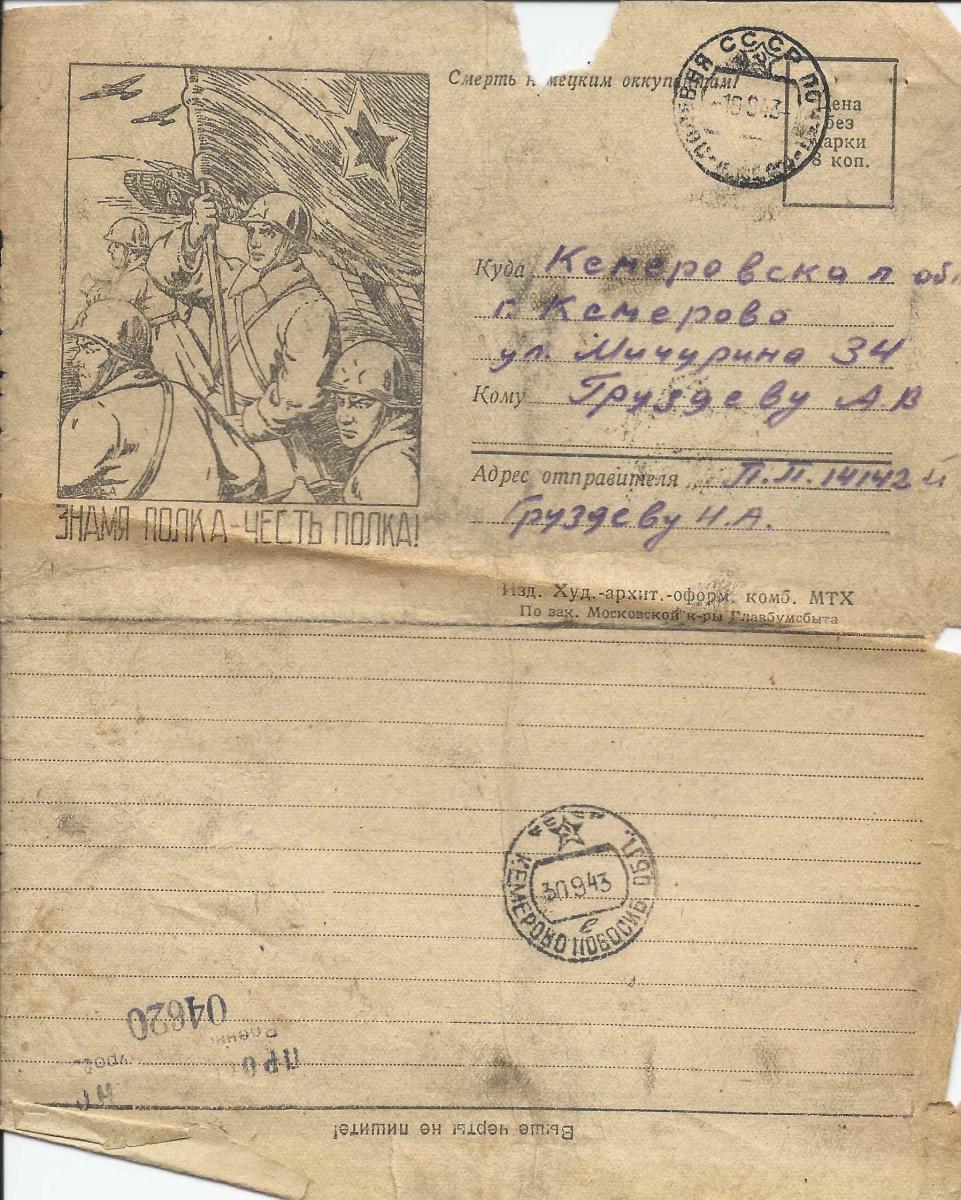 Смерть немецким оккупантам!
СССР
10943
Цена
без
марки
8 коп.
Куда Кемеровская обл
г. Кемерово
ул. Мичурина 34
Кому Груздеву А В
Адрес отправителя П.П. 14142 И
Груздеву Н.А.
ЗНАМЯ ПОЛКА - ЧЕСТЬ ПОЛКА!
Изд. Худ.-архит.-оформ. комб. МТХ
По зак. Московской к-ры Главбумсбыта
КЕМЕРОВО НОВОСИБ. ОБЛ.
30 9 43
е
04620
ПРО
Выше черты не пишите!